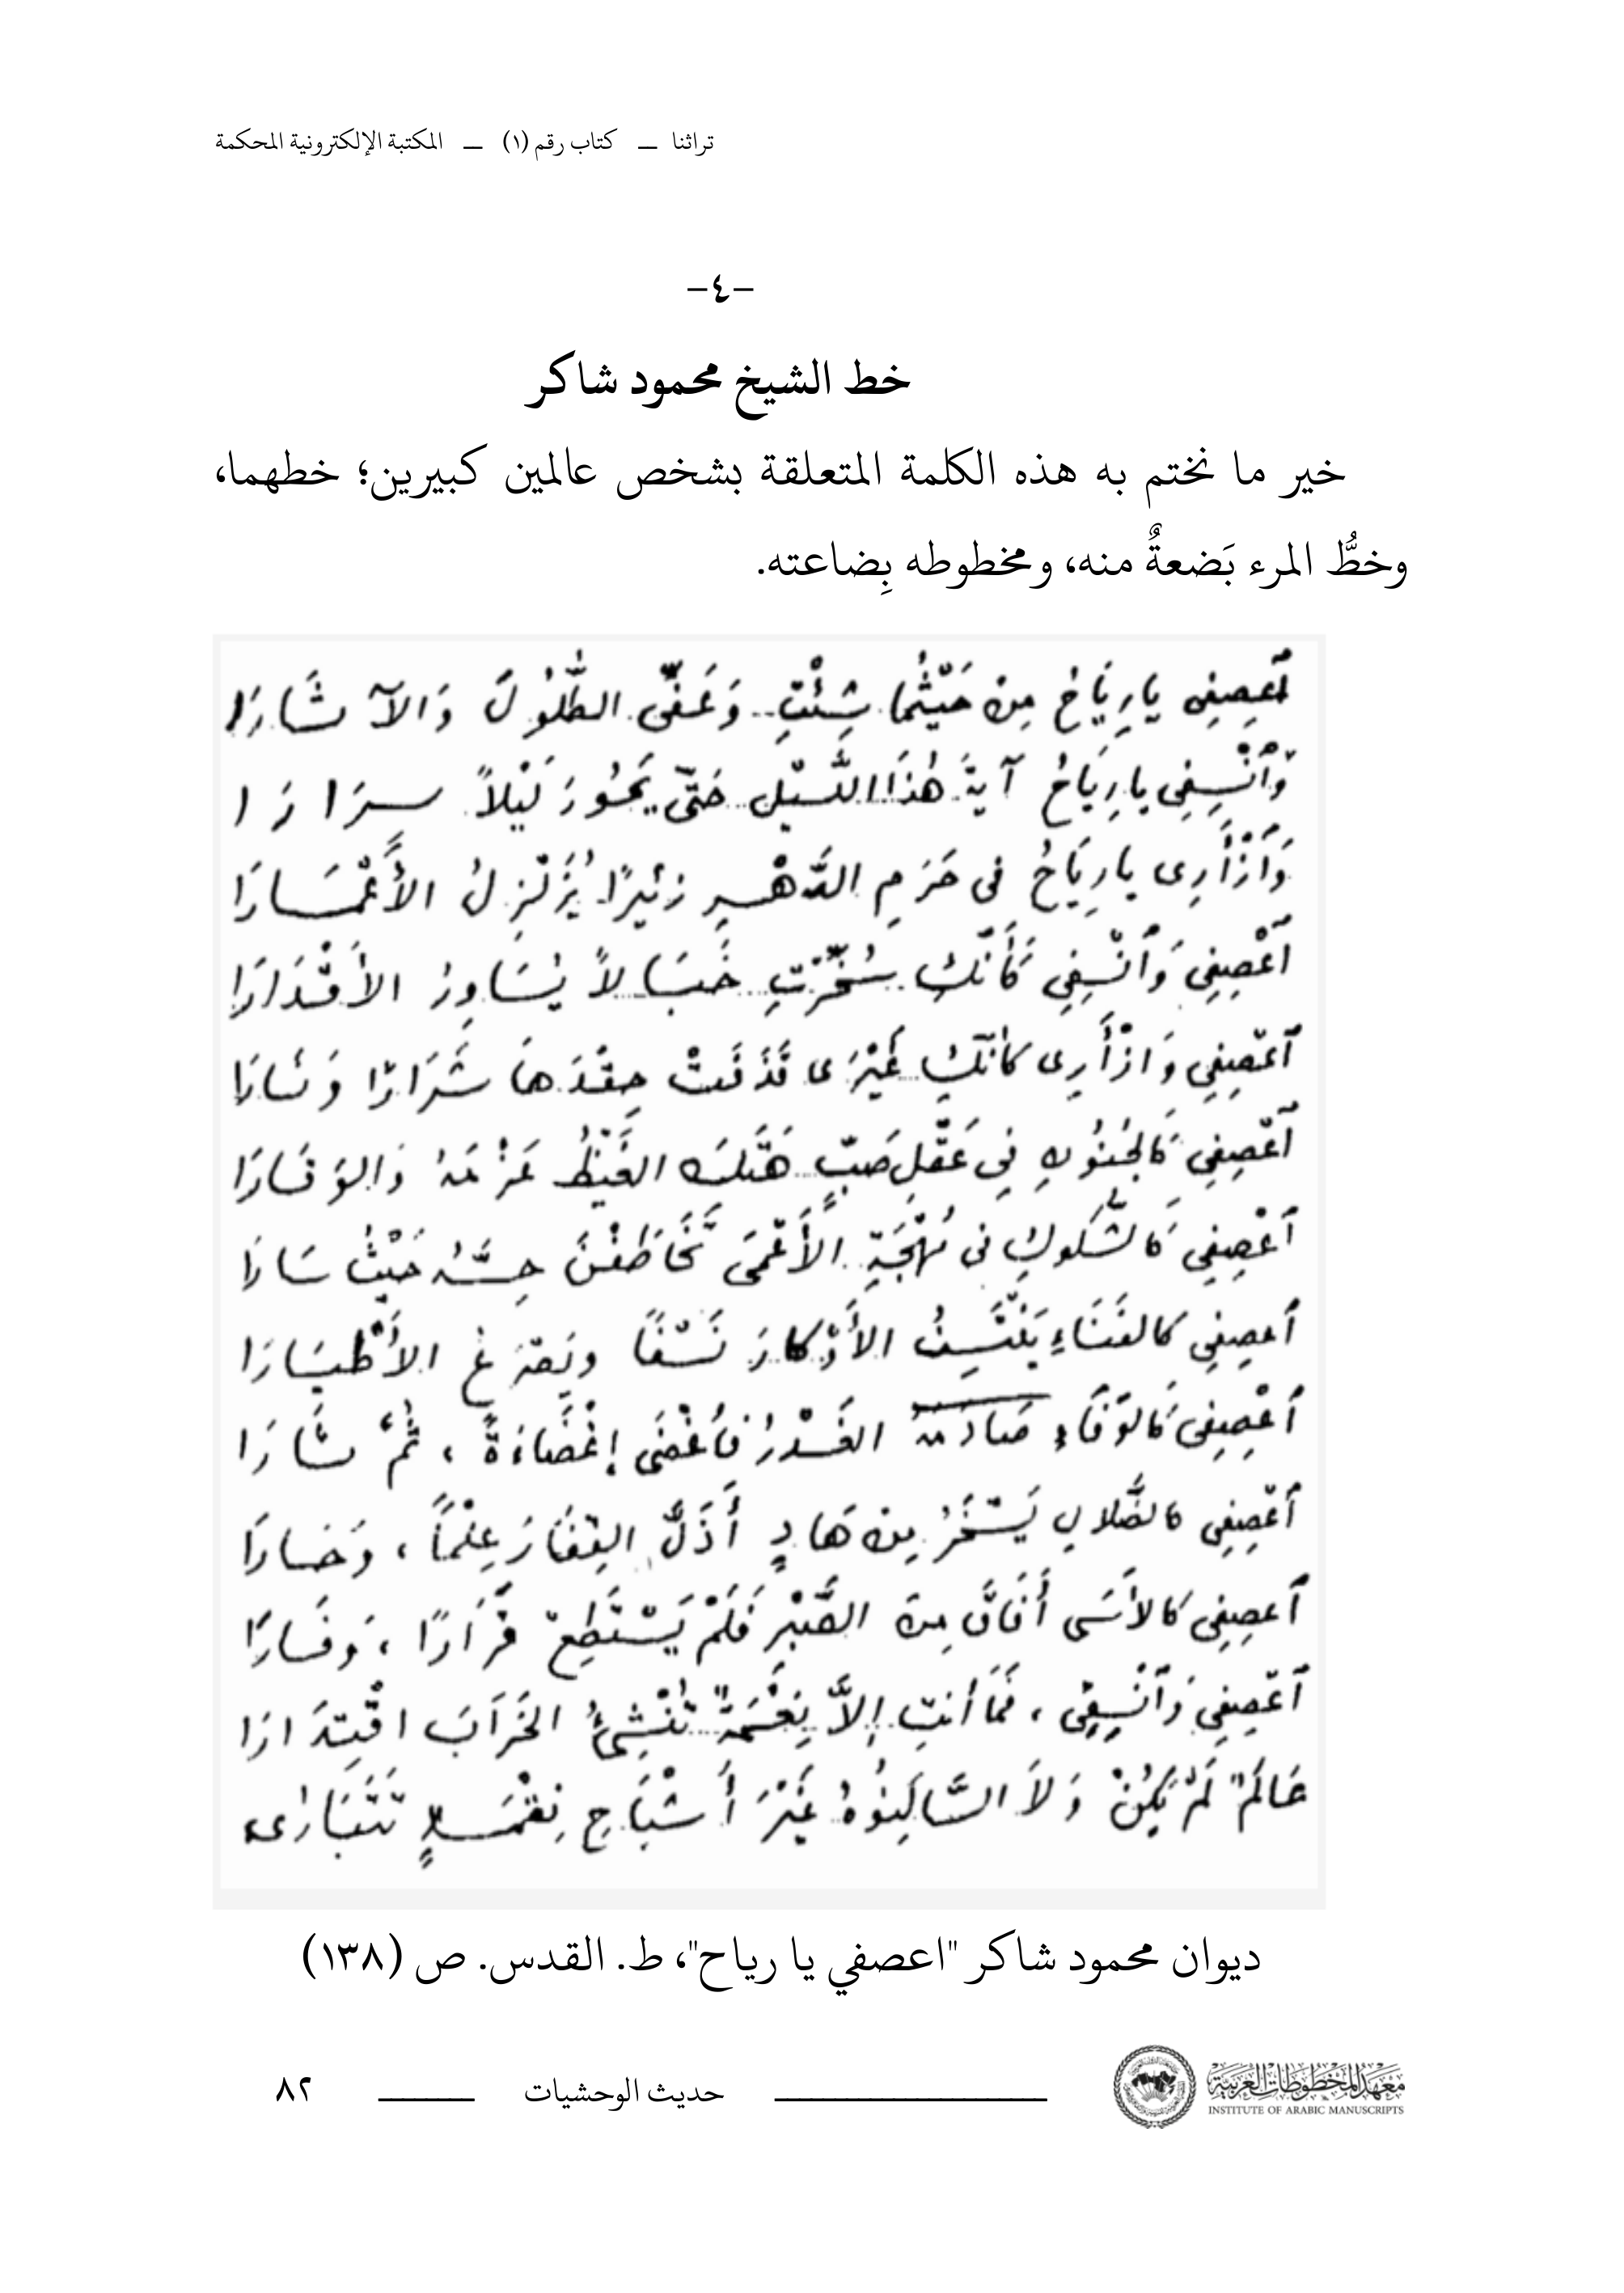 تراثنا — كتاب رقم (١) — المكتبة الإلكترونية المحكمة
-٤-
خط الشيخ محمود شاكر
خير ما نختم به هذه الكلمة المتعلقة بشخص عالمين كبيرين؛ خطهما،
وخطُّ المرء بَضعةٌ منه، ومخطوطه بِضاعته.
ٱعصِفِى يا رِيَاحُ مِنْ حَيْثُما شِئْتِ.. وَعَفِّى الطُّلُولَ وَالآثَارَا
وَٱنْسِفِى يا رِيَاحُ آيةَ هٰذَا اللَّيْلِ حَتَّى يَحُورَ لَيْلاً سِرَارَا
وَٱزْأَرِى يا رِيَاحُ فى حَرَمِ الدَّهْرِ زئيرًا يُزَلْزِلُ الأَعْمَارَا
ٱعْصِفِى وَٱنْسِفِى كَأَنَّكِ سُخِّرْتِ.. خَبَالاً يُسَاوِرُ الأَقْدَارَا
ٱعْصِفِى وَازْأَرِى كأنَّكِ غَيْرَى قَذَفَتْ حِقْدَهَا شَرَارًا وَنَارَا
ٱعْصِفِى كَالجُنُونِ فِى عَقْلِ صَبٍّ.. هَتَكَ الغَيْظُ عَزْمَهُ وَالوَقَارَا
ٱعْصِفِى كَالشُّكُوكِ فى مُهْجَةِ الأَعْمَى تَخَاطَفْنَ حِسَّهُ حَيْثُ سَارَا
ٱعصِفِى كالفَنَاءِ يَنْتَسِفُ الأَوْكارَ نَسْفًا ويَصْرَعُ الأَطْيَارَا
ٱعْصِفِى كَالوَفَاءِ صَادَمَهُ الغَدْرُ فأَغْضَى إغْضَاءَةً، ثُمَّ ثَارَا
ٱعْصِفِى كالضَّلالِ يَسْخَرُ مِنْ هَادٍ أَذَلَّ القِفَارَ عِلْمًا، وَحَارَا
ٱعصِفِى كَالأَسَى أَفَاقَ مِنَ الصَّبْرِ فَلَمْ يَسْتَطِعْ قَرَارًا، وَفَارَا
ٱعْصِفِى وَٱنْسِفِى، فَمَا أنتِ إلاَّ نِعْمَةٌ تُنْشِئُ الخَرَابَ اقْتِدَارَا
عَالَمٌ لَمْ يَكُنْ وَلاَ السَّاكِنُوهُ غَيْرَ أَشْبَاحِ نِقْمَةٍ تَتَبَارَى
ديوان محمود شاكر "اعصفي يا رياح"، ط. القدس. ص (١٣٨)
معهد المخطوطات العربية
INSTITUTE OF ARABIC MANUSCRIPTS
حديث الوحشيات
٨٢